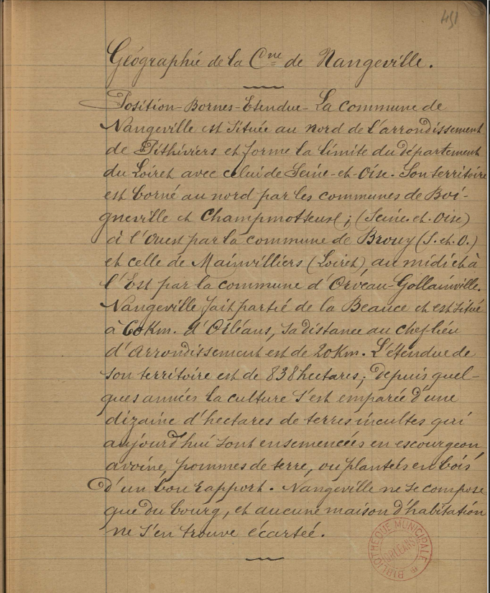 451
Géographie de la Cne de Nangeville.
Position-Bornes-Etendue-La commune de
Nangeville est située au nord de l'arrondissement
de Pithiviers et forme la limite du département
du Loiret avec celui de Seine-et-Oise-Son territoire
est borné au nord par les communes de Boi-
gneville et Champmotteux; (Seine-et-Oise)
à l'Ouest par la commune de Brouy (S.-et-O.)
et celle de Mainvilliers (Loiret) au midi et à
l'Est par la commune d'Orveau-Gollainville.
Nangeville fait partie de la Beauce et est situé
à 60 Km. d'Orléans, sa distance au chef lieu
d'arrondissement est de 20 Km. L'étendue de
son territoire est de 838 hectares; depuis quel-
ques années la culture s'est emparée d'une
dizaine d'hectares de terres incultes qui
aujourd'hui sont ensemencées en escourgeon
avoine, pommes de terre, ou plantés en bois
d'un bon rapport. Nangeville ne se compose
que du bourg, et aucune maison d'habitation
ne s'en trouve écartée.
BIBLIOTHEQUE MUNICIPALE
ORLEANS